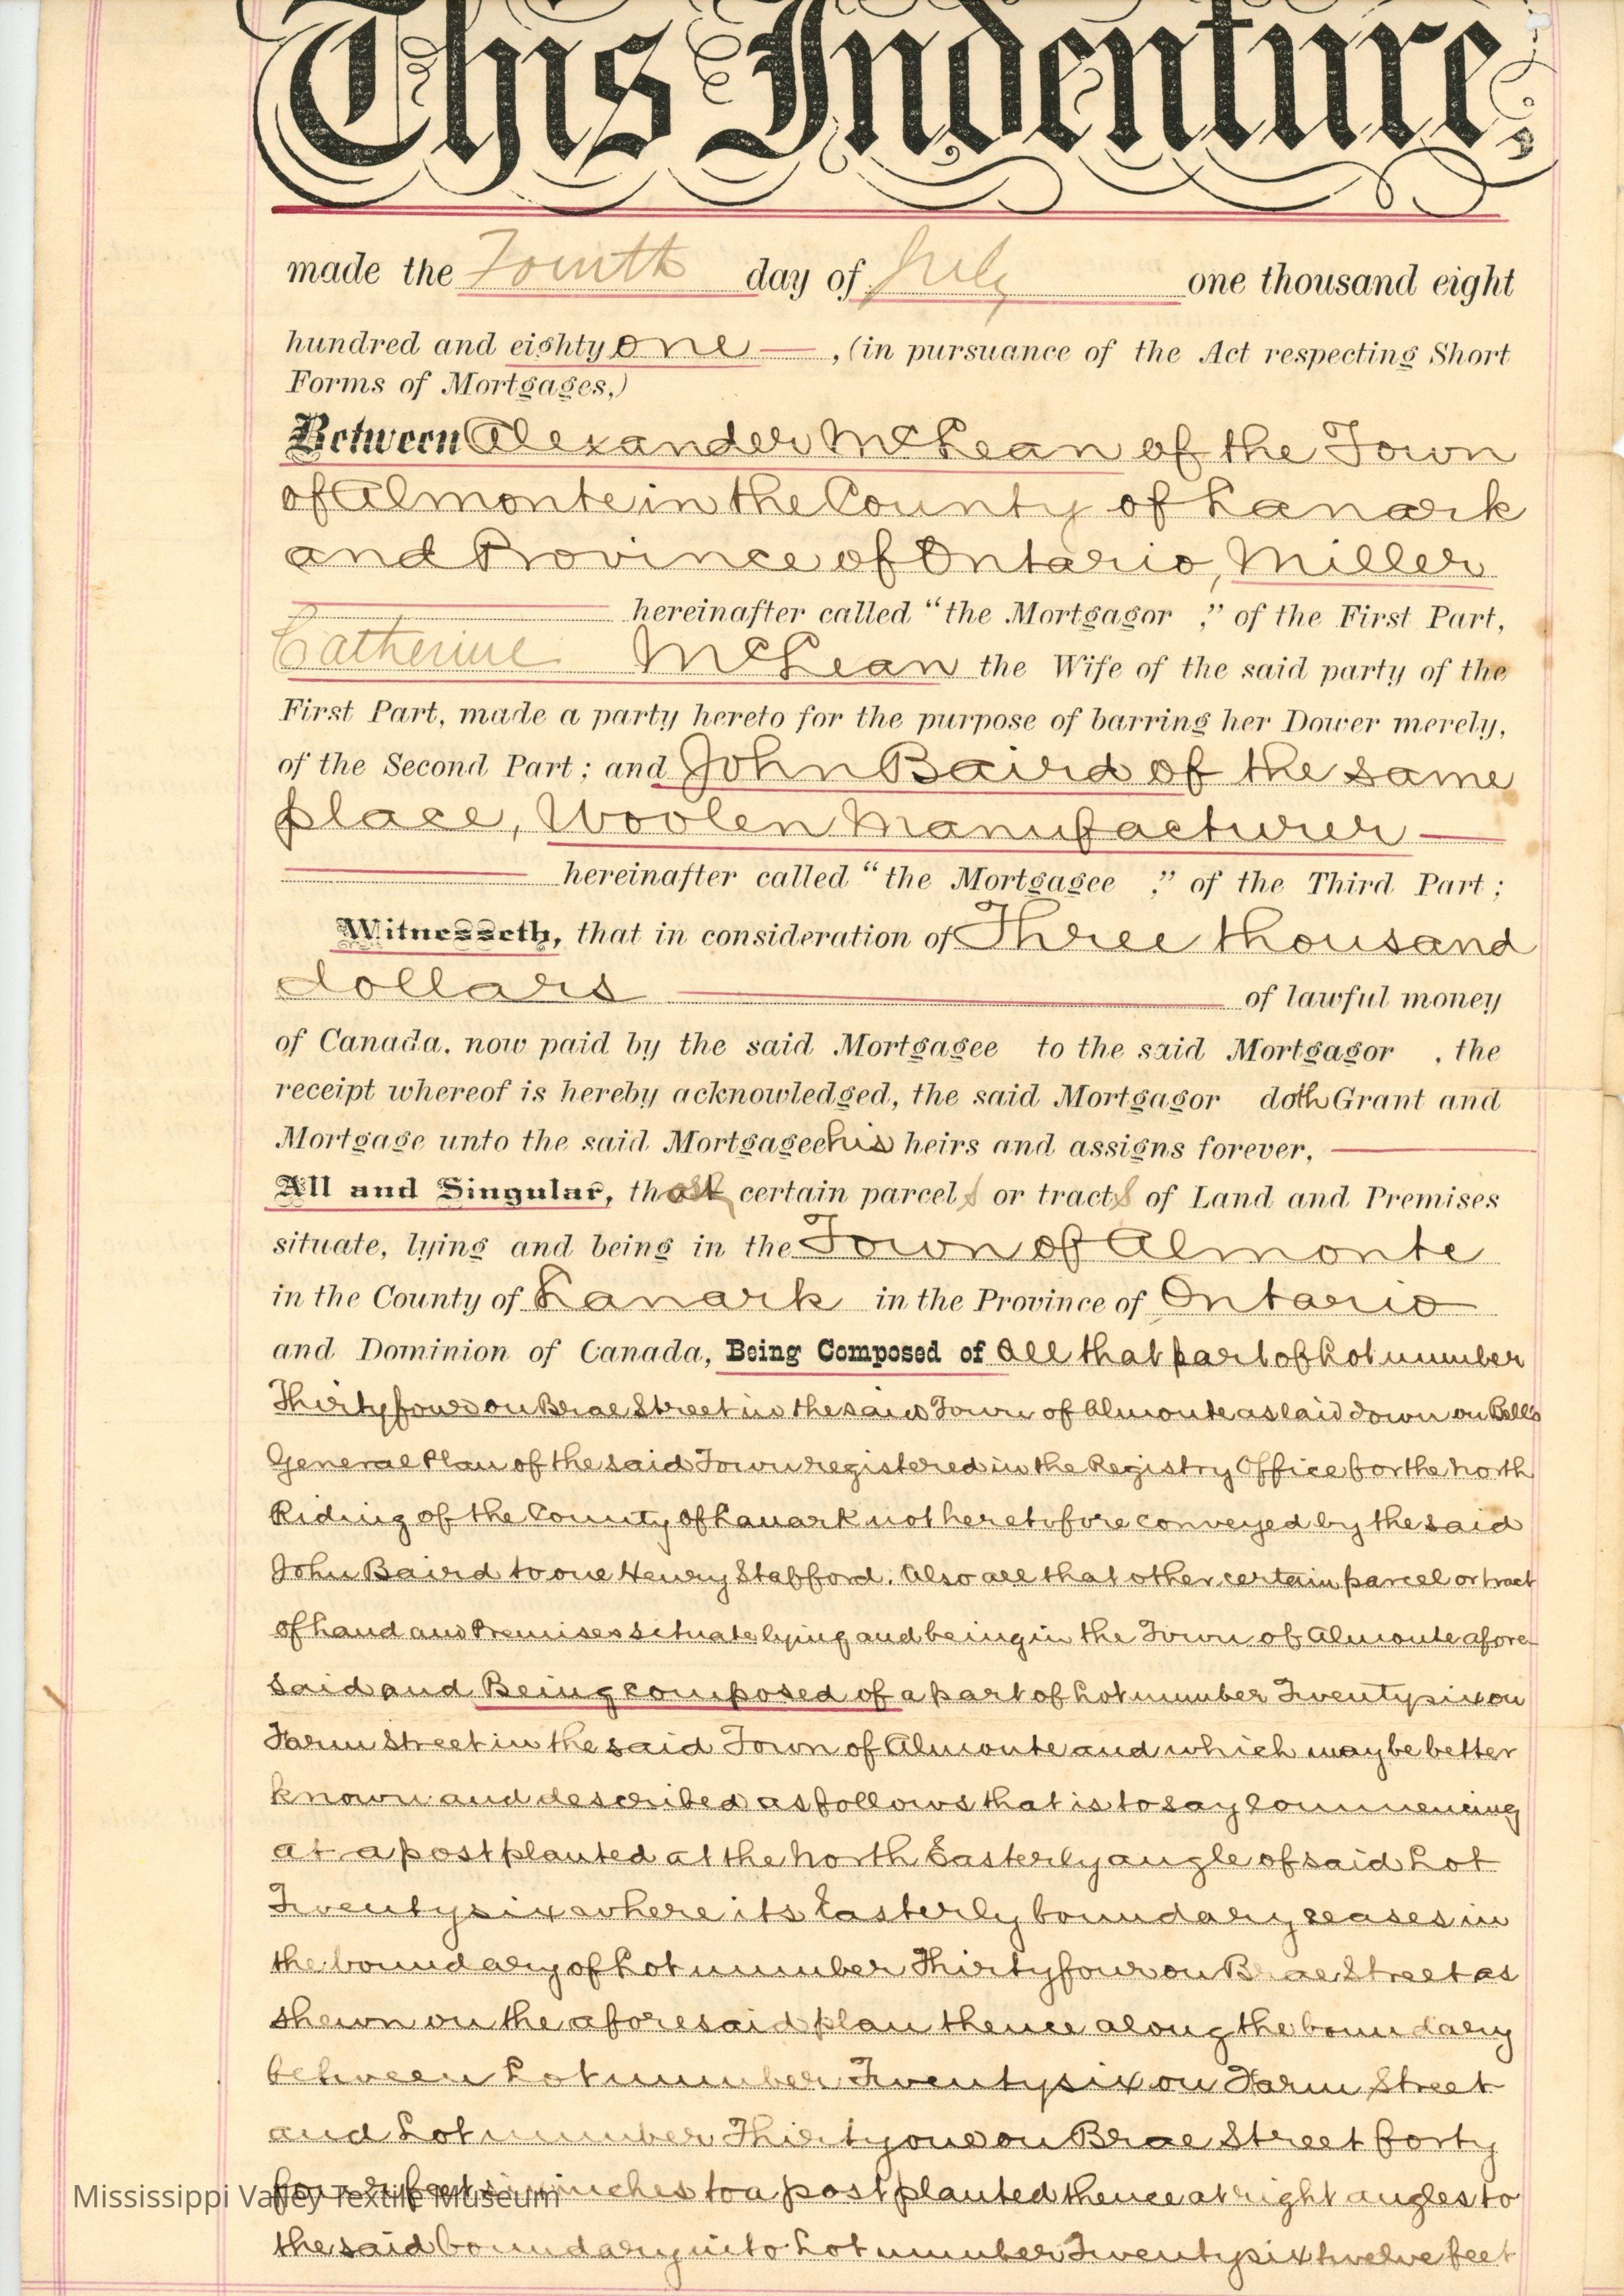 This Indenture,
made the Fourth day of July one thousand eight
hundred and eighty one —, (in pursuance of the Act respecting Short
Forms of Mortgages,)
Between Alexander McLean of the Town
of Almonte in the County of Lanark
and Province of Ontario, Miller
hereinafter called "the Mortgagor ," of the First Part,
Catherine McLean the Wife of the said party of the
First Part, made a party hereto for the purpose of barring her Dower merely,
of the Second Part; and John Baird of the same
place, Woolen Manufacturer —
hereinafter called "the Mortgagee ;" of the Third Part;
Witnesseth, that in consideration of Three thousand
dollars of lawful money
of Canada, now paid by the said Mortgagee to the said Mortgagor , the
receipt whereof is hereby acknowledged, the said Mortgagor doth Grant and
Mortgage unto the said Mortgagee his heirs and assigns forever,
All and Singular, that certain parcel or tract of Land and Premises
situate, lying and being in the Town of Almonte
in the County of Lanark in the Province of Ontario
and Dominion of Canada, Being Composed of All that part of Lot number
Thirty four on Brae Street in the said Town of Almonte as laid down on Bell's
General Plan of the said Town registered in the Registry Office for the North
Riding of the County of Lanark not heretofore conveyed by the said
John Baird to one Henry Stafford. Also all that other certain parcel or tract
of Land and Premises situate lying and being in the Town of Almonte afore-
said and Being composed of a part of Lot number Twenty six on
Farm Street in the said Town of Almonte and which may be better
known and described as follows that is to say commencing
at a post planted at the North Easterly angle of said Lot
Twenty six where its Easterly boundary ceases in
the boundary of Lot number Thirty four on Brae Street as
shewn on the aforesaid plan thence along the boundary
between Lot number Twenty six on Farm Street
and Lot number Thirty one on Brae Street forty
four feet six inches to a post planted thence at right angles to
the said boundary into Lot number Twenty six twelve feet
Mississippi Valley Textile Museum